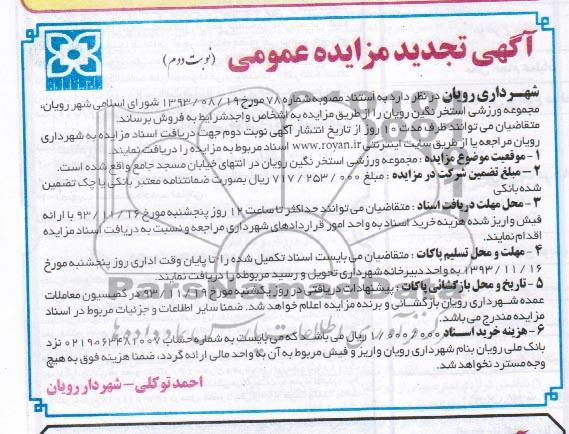 آگهی تجدید مزایده عمومی (نوبت دوم)
شهرداری رویان در نظر دارد به استناد مصوبه شماره ۷۸ مورخ ۱۳۹۳/۰۸/۱۹ شورای اسلامی شهر رویان،
مجموعه ورزشی استخر نگین رویان را از طریق مزایده به اشخاص واجد شرایط به فروش برساند.
متقاضیان می توانند ظرف مدت ۱۰ روز از تاریخ انتشار آگهی نوبت دوم جهت دریافت اسناد مزایده به شهرداری
رویان مراجعه یا از طریق سایت اینترنتی www.royan.ir اسناد مربوط به مزایده را دریافت نمایند.
۱- موقعیت موضوع مزایده : مجموعه ورزشی استخر نگین رویان در انتهای خیابان مسجد جامع واقع شده است.
۲- مبلغ تضمین شرکت در مزایده : مبلغ ۷۱۷/۲۵۳/۰۰۰ ریال بصورت ضمانتنامه معتبر بانکی یا چک تضمین
شده بانکی
۳- محل مهلت دریافت اسناد : متقاضیان می توانند حداکثر تا ساعت ۱۲ روز پنجشنبه مورخ ۹۳/۱۱/۱۶ با ارائه
فیش واریز شده هزینه خرید اسناد به واحد امور قراردادهای شهرداری مراجعه و نسبت به دریافت اسناد مزایده
اقدام نمایند.
۴- مهلت و محل تسلیم پاکات : متقاضیان می بایست اسناد تکمیل شده را تا پایان وقت اداری روز پنجشنبه مورخ
۱۳۹۳/۱۱/۱۶ به واحد دبیرخانه شهرداری تحویل و رسید مربوطه را دریافت نمایند.
۵- تاریخ و محل بازگشائی پاکات : پیشنهادات دریافتی در روز یکشنبه مورخ ۹۳/۱۱/۱۹ در کمیسیون معاملات
عمده شهرداری رویان بازگشائی و برنده مزایده اعلام خواهد شد. ضمنا سایر اطلاعات و جزئیات مربوط در اسناد
مزایده مندرج می باشد.
۶- هزینه خرید اسناد : ۱/۰۰۰/۰۰۰ ریال می باشد که می بایست به شماره حساب ۰۲۱۹۰۶۳۴۸۱۰۰۷ نزد
بانک ملی رویان بنام شهرداری رویان واریز و فیش مربوط به آن به واحد مالی ارائه گردد. ضمنا هزینه فوق به هیچ
وجه مسترد نخواهد شد.
احمد توکلی - شهردار رویان